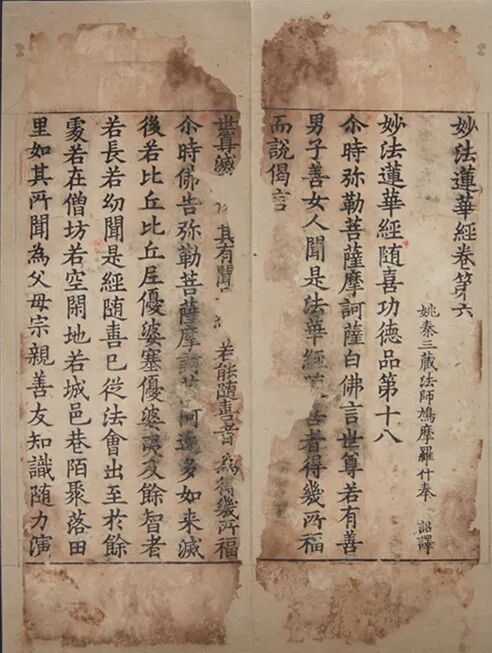 妙法蓮華經卷第六
姚秦三藏法師鳩摩羅什奉 詔譯
妙法蓮華經随喜功德品第十八
尒時弥勒菩薩摩訶薩白佛言世尊若有善
男子善女人聞是法華經 喜者得幾所福
而說偈言
世尊滅 其有聞 若能随喜者 為得幾所福
尒時佛告弥勒菩薩摩訶 阿逸多如来滅
後若比丘比丘尼優婆塞優婆 及餘智者
若長若幼聞是經随喜已從法會出至於餘
處若在僧坊若空閑地若城邑巷陌聚落田
里如其所聞為父母宗親善友知識随力演